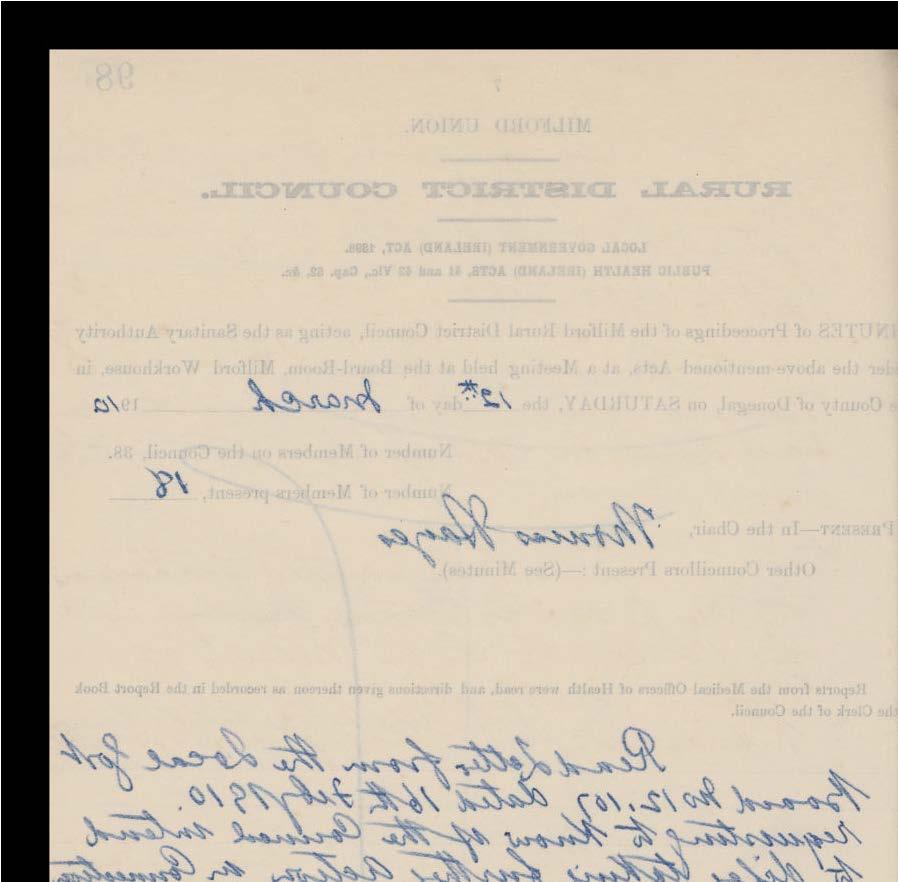 98
7
MILFORD UNION.
RURAL DISTRICT COUNCIL.
LOCAL GOVERNMENT (IRELAND) ACT, 1898.
PUBLIC HEALTH (IRELAND) ACTS, 41 and 42 Vic., Cap. 52, &c.
NUTES of Proceedings of the Milford Rural District Council, acting as the Sanitary Authority
der the above-mentioned Acts, at a Meeting held at the Board-Room, Milford Workhouse, in
e County of Donegal, on SATURDAY, the 12th day of March 1910
Number of Members on the Council, 38.
Number of Members present, 18
PRESENT—In the Chair, Thomas Hayes
Other Councillors Present :—(See Minutes).
Reports from the Medical Officers of Health were read, and directions given thereon as recorded in the Report Book
the Clerk of the Council.
Read letter from the Local Govt
Board No 12,107 dated 16th Feby 1910
requesting to know if the Council intend
to taking further action in